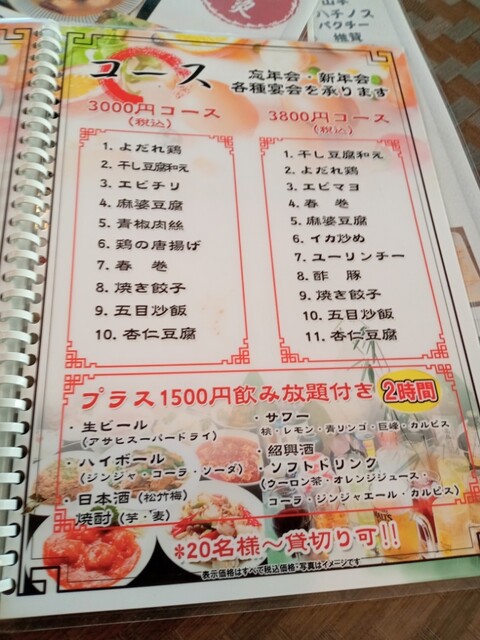 山本
ハチノス
パクチー
コース
忘年会・新年会
各種宴会を承ります
3000円コース
(税込)
1. よだれ鶏
2. 干し豆腐和え
3. エビチリ
4. 麻婆豆腐
5. 青椒肉絲
6. 鶏の唐揚げ
7. 春 巻
8. 焼き餃子
9. 五目炒飯
10. 杏仁豆腐
3800円コース
(税込)
1. 干し豆腐和え
2. よだれ鶏
3. エビマヨ
4. 春 巻
5. 麻婆豆腐
6. イカ炒め
7. ユーリンチー
8. 酢 豚
9. 焼き餃子
10. 五目炒飯
11. 杏仁豆腐
プラス1500円飲み放題付き 2時間
・生ビール
(アサヒスーパードライ)
・ハイボール
(ジンジャ・コーラ・ソーダ)
・日本酒(松竹梅)
焼酎(芋・麦)
・サワー
桃・レモン・青リンゴ・巨峰・カルピス
・紹興酒
・ソフトドリンク
(ウーロン茶・オレンジジュース・
コーラ・ジンジャエール・カルピス)
*20名様〜貸切り可!!
表示価格はすべて税込価格・写真はイメージです